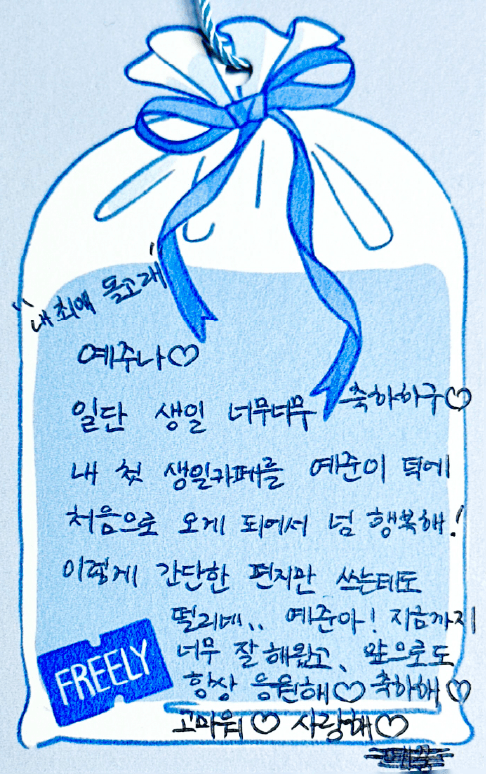 "내 최애 돌고래"
예주나♡
일단 생일 너무너무 축하하구♡
내 첫 생일카페를 예준이 덕에
처음으로 오게 되어서 넘 행복해!
이렇게 간단한 편지만 쓰는데도
떨리네.. 예준아! 지금까지
너무 잘 해왔고, 앞으로도
항상 응원해♡ 축하해♡
고마워♡ 사랑해♡
FREELY